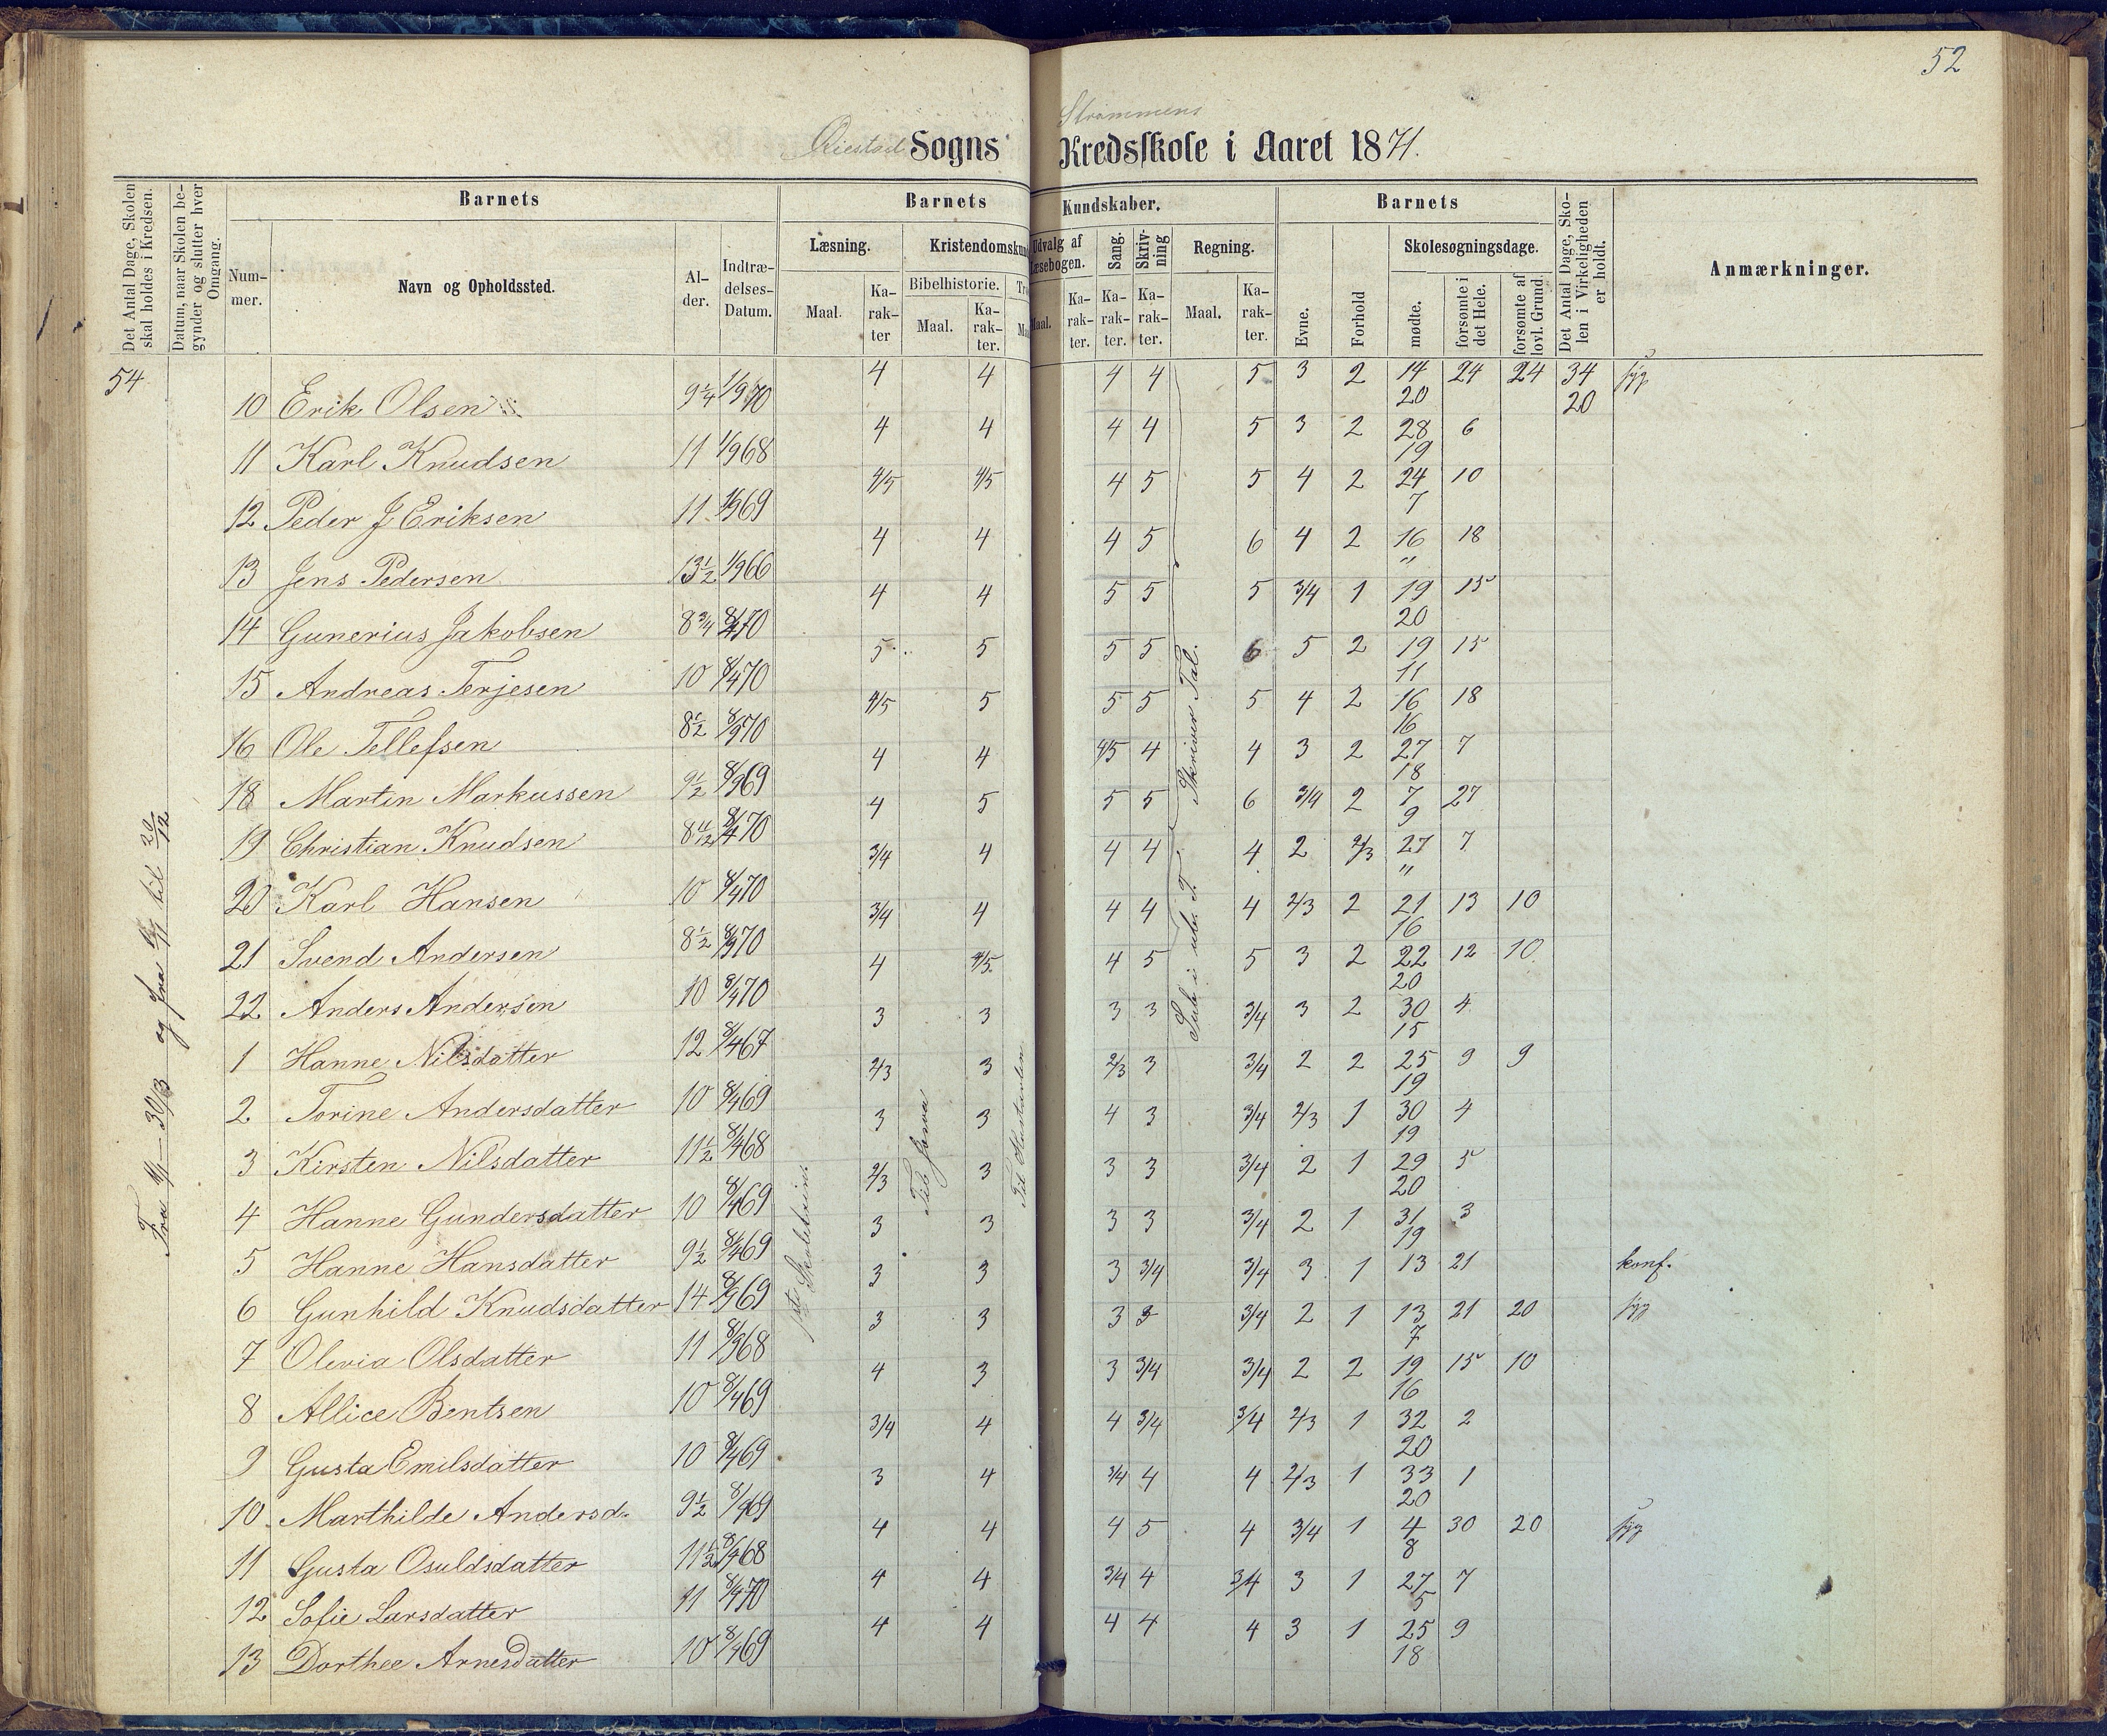 52
Øiestad Sogns Strømmens Kredsskole i Aaret 1871.
Det Antal Dage, Skolen skal holdes i Kredsen.
Datum, naar Skolen begynder og slutter hver Omgang.
Barnets
Num-mer.
Navn og Opholdssted.
Al-der.
Indtræ-delses-Datum.
Barnets Kundskaber.
Læsning.
Maal.
Ka-rak-ter
Kristendomskun
Bibelhistorie.
Maal.
Ka-rak-ter.
Udvalg af Læsebogen.
Maal.
Ka-rak-ter.
Sang.
Ka-rak-ter.
Skriv-ning
Ka-rak-ter.
Regning.
Maal.
Ka-rak-ter.
Barnets
Evne.
Forhold
Skolesøgningsdage.
mødte.
forsømte i det Hele.
forsømte af lovl. Grund.
Det Antal Dage, Sko-len i Virkeligheden er holdt.
Anmærkninger.
54
10 Erik Olsen 9 1/4 1/9 70 4 4 4 4 5 3 2 14 20 24 24 34 20 syg
11 Karl Knudsen 11 1/9 68 4 4 4 4 5 3 2 28 19 6
12 Peder J Eriksen 11 1/9 69 4/5 4/5 4 5 5 4 2 24 7 10
13 Jens Pedersen 13 1/2 1/9 66 4 4 4 5 6 4 2 16 " 18
14 Gunerius Jakobsen 8 3/4 8/4 70 4 4 5 5 5 3/4 1 19 20 15
15 Andreas Terjesen 10 8/4 70 5 5 5 5 6 5 2 19 11 15
16 Ole Tellefsen 8 1/2 8/9 70 4/5 5 5 5 5 4 2 16 16 18
18 Martin Markussen 9 1/2 8/9 69 4 4 4/5 4 4 3 2 27 18 7
19 Christian Knudsen 8 11/12 8/4 70 4 5 5 5 6 3/4 2 7 9 27
20 Karl Hansen 10 8/4 70 3/4 4 4 4 4 2 2/3 27 " 7
21 Svend Andersen 8 1/2 8/9 70 3/4 4 4 4 4 2/3 2 21 16 13 10
22 Anders Andersen 10 8/4 70 4 4/5 4 5 5 3 2 22 20 12 10
1 Hanne Nilsdatter 12 8/4 67 3 3 3 3 3/4 3 2 30 15 4
2 Torine Andersdatter 10 8/4 69 2/3 3 2/3 3 3/4 2 2 25 19 9 9
3 Kirsten Nilsdatter 11 1/2 8/4 68 3 3 4 3 3/4 2/3 1 30 19 4
4 Hanne Gundersdatter 10 8/4 69 2/3 3 3 3 3/4 2 1 29 20 5
5 Hanne Hansdatter 9 1/2 8/4 69 3 3 3 3 3/4 2 1 31 19 3
6 Gunhild Knudsdatter 14 8/9 69 3 3 3 3/4 3/4 3 1 13 21 konf.
7 Olevia Olsdatter 11 8/9 68 3 3 3 3 3/4 2 1 13 7 21 20 syg
8 Allice Bentsen 10 8/4 69 4 3 3 3/4 3/4 2 2 19 16 15 10
9 Gusta Emilsdatter 10 8/4 69 3/4 4 4 3/4 3/4 2/3 1 32 20 2
10 Marthilde Andersd. 9 1/2 8/9 69 3 4 3/4 4 4 2/3 1 33 20 1
11 Gusta Osuldsdatter 11 1/2 8/4 68 4 4 4 5 4 3/4 1 4 8 30 20 syg
12 Sofie Larsdatter 11 8/4 70 4 4 3/4 4 3/4 3 1 27 5 7
13 Dorthee Arnesdatter 10 8/4 69 4 4 4 4 4 3 1 25 18 9
og fra til 20/12
1ste Skoletrins
Til
Skriver Tal.
Sub. i T.